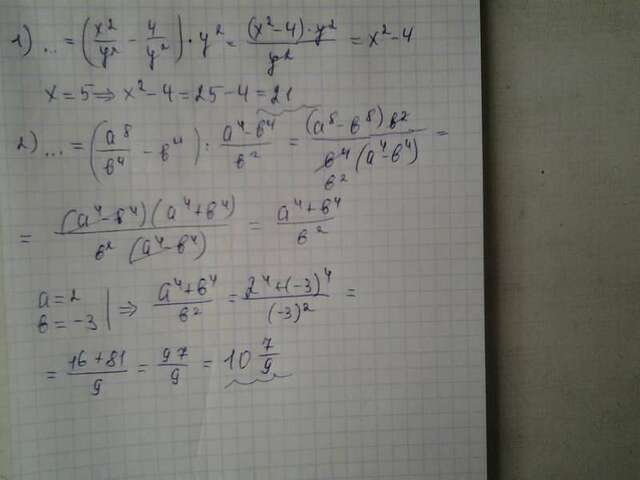 1) ... = (x²/y² - 4/y²) · y² = (x²-4)·y²/y² = x²-4
x = 5 ⇒ x²-4 = 25-4 = 21
2) ... = (a⁸/в⁴ - в⁴) : a⁴-в⁴/в² = (a⁸-в⁸)в²/в⁴(a⁴-в⁴) =
в²
= (a⁴-в⁴)(a⁴+в⁴)/в²(a⁴-в⁴) = a⁴+в⁴/в²
a = 2
в = -3 | ⇒ a⁴+в⁴/в² = 2⁴+(-3)⁴/(-3)² =
= 16+81/9 = 97/9 = 10 7/9